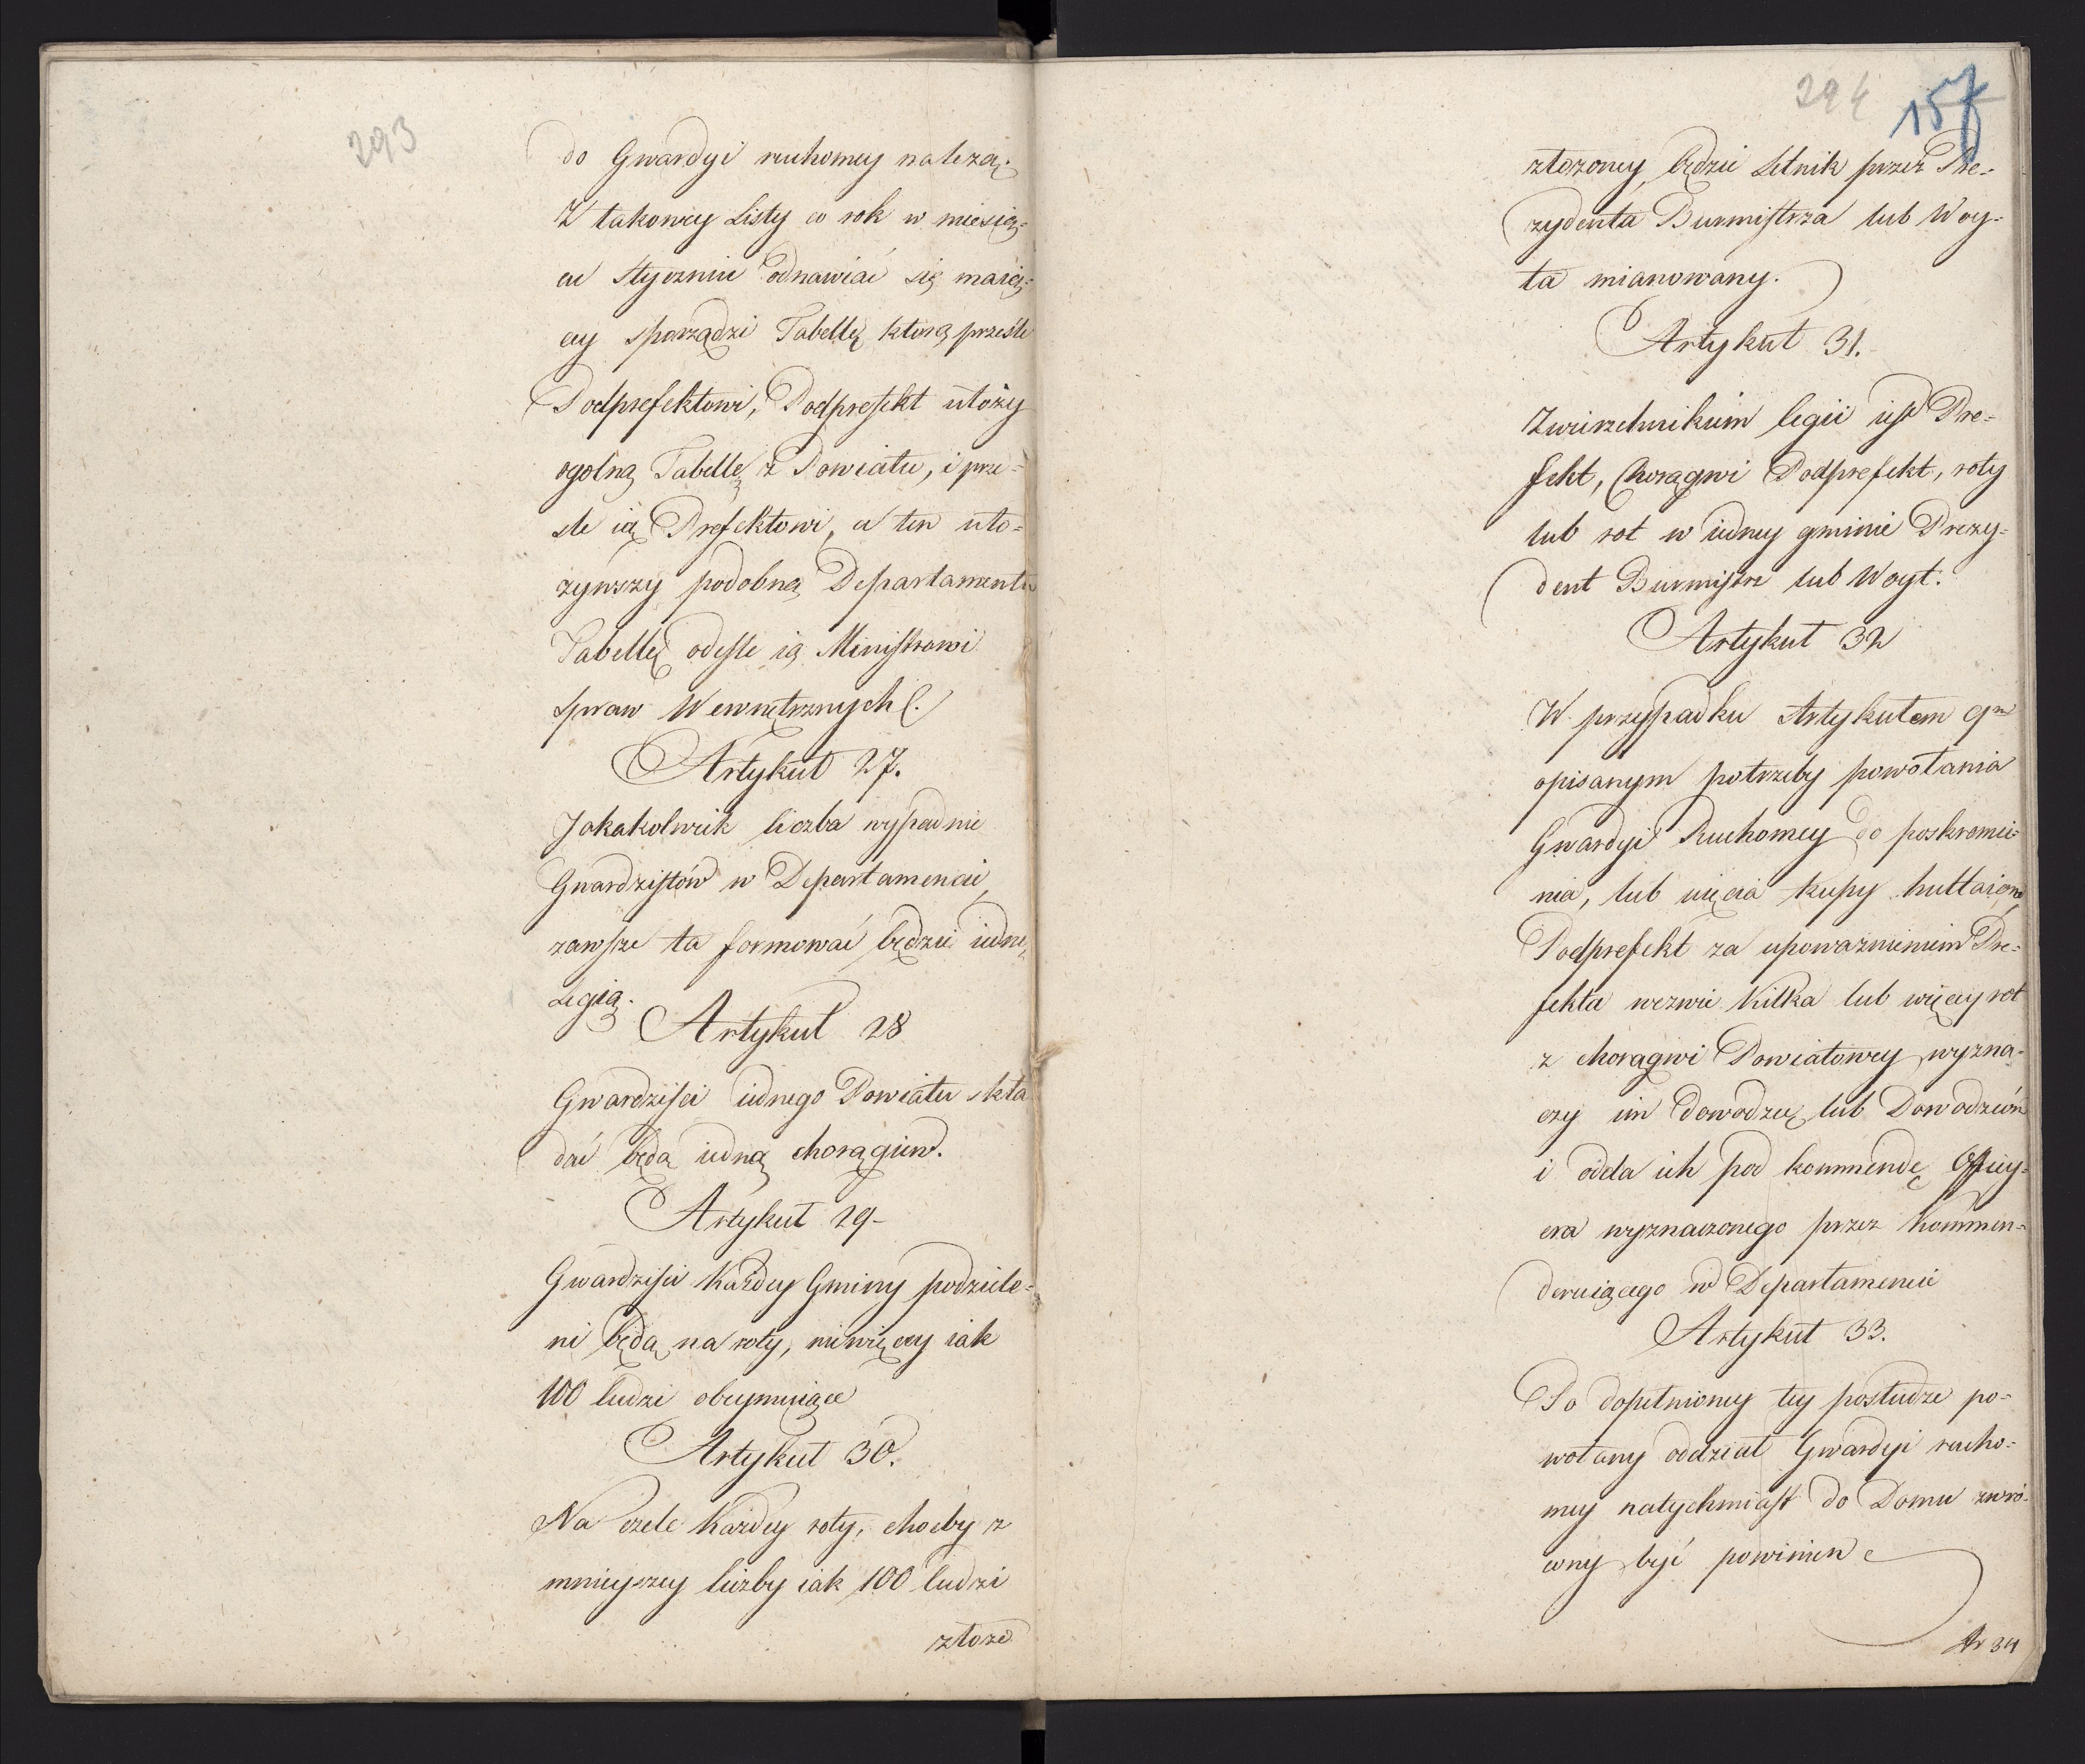 293
do Gwardyi ruchomey należą.
Z takowey Listy co rok w miesią=
cu Styczniu odnawiać się maią=
cey sporządzi Tabellę którą prześle
Podprefektowi, Podprefekt ułoży
ogolną Tabellę z Powiatu, i prze=
sle ią Prefektowi, a ten uło=
żywszy podobną Departamentu
Tabellę odeśle ią Ministrowi
spraw Wewnętrznych.
Artykuł 27.
Jakakolwiek liczba wypadnie
Gwardzistów w Departamencie,
zawsze ta formować będzie iedną
Legią.
Artykuł 28
Gwardziści iednego Powiatu skła
dać będą iedną chorągiew.
Artykuł 29-
Gwardziści Każdey Gminy podziele=
ni będą na roty, niewięcey iak
100 ludzi obeymuiące
Artykuł 30.
Na czele Każdey roty, choćby z
mnieyszey liczby iak 100 ludzi
złożo
294
157
złożoney, będzie Setnik przez Pre=
zydenta Burmistrza lub Woy=
ta mianowany.
Artykuł 31.
Zwierzchnikiem legii iest Pre=
fekt, Chorągwi Podprefekt, roty
lub rot w iedney gminie Prezy=
dent Burmistrz lub Woyt.
Artykuł 32
W przypadku Artykułem 9m
opisanym potrzeby powołania
Gwardyi Ruchomey do poskromie=
nia, lub uięcia kupy hultaione
Podprefekt za upoważnieniem Pre=
fekta wezwie Kilka lub więcey rot
z chorągwi Powiatowey wyzna=
czy im dowodzcę lub Dowodzców
i odda ich pod kommendę Officy=
era wyznaczonego przez Kommen=
deruiącego w Departamencie
Artykuł 33.
Po dopełnioney tey posłudze po=
wołany oddział Gwardyi rucho=
mey natychmiast do Domu zwró=
cony być powinien
Ar 34